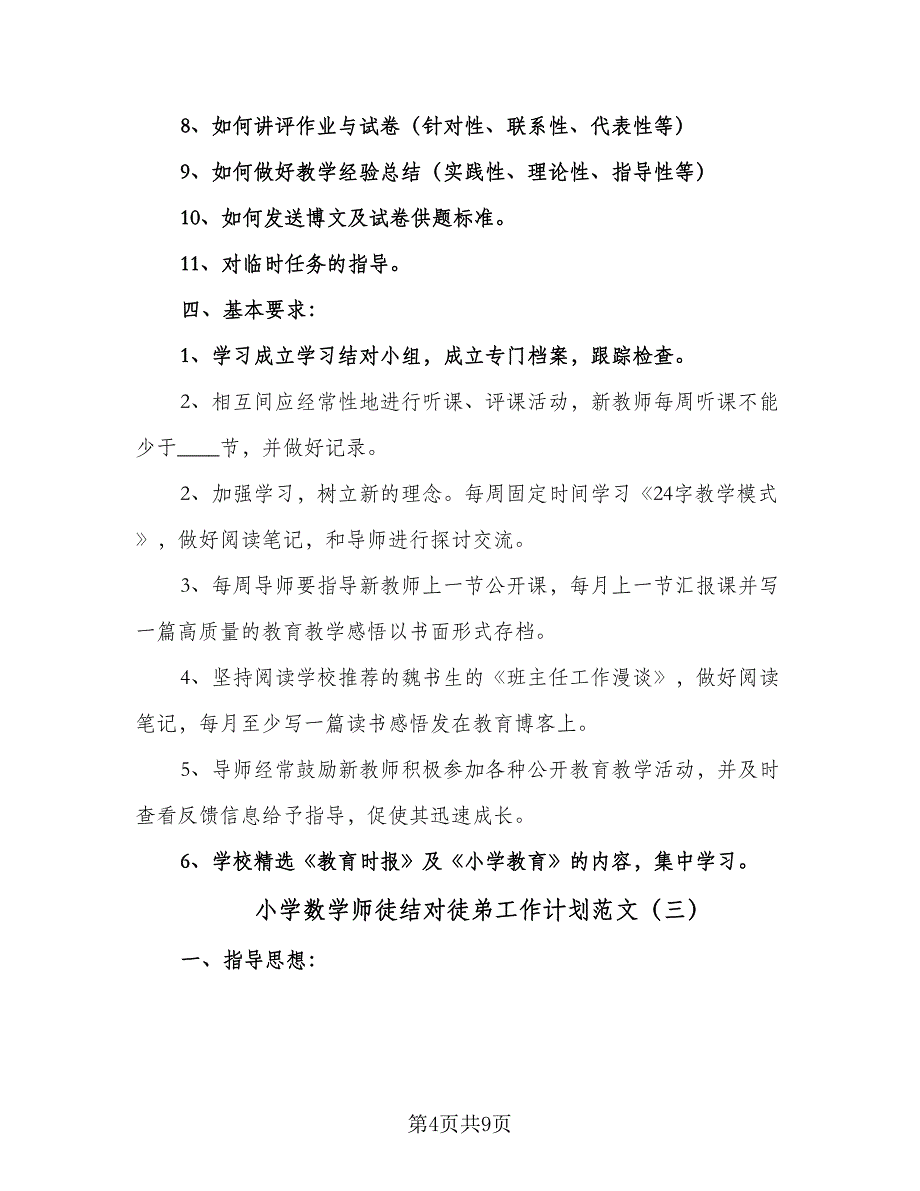 8、如何讲评作业与试卷（针对性、联系性、代表性等）
9、如何做好教学经验总结（实践性、理论性、指导性等）
10、如何发送博文及试卷供题标准。
11、对临时任务的指导。
四、基本要求：
1、学习成立学习结对小组，成立专门档案，跟踪检查。
2、相互间应经常性地进行听课、评课活动，新教师每周听课不能
少于____节，并做好记录。
2、加强学习，树立新的理念。每周固定时间学习《24字教学模式
》，做好阅读笔记，和导师进行探讨交流。
3、每周导师要指导新教师上一节公开课，每月上一节汇报课并写
一篇高质量的教育教学感悟以书面形式存档。
4、坚持阅读学校推荐的魏书生的《班主任工作漫谈》，做好阅读
笔记，每月至少写一篇读书感悟发在教育博客上。
5、导师经常鼓励新教师积极参加各种公开教育教学活动，并及时
查看反馈信息给予指导，促使其迅速成长。
6、学校精选《教育时报》及《小学教育》的内容，集中学习。
小学数学师徒结对徒弟工作计划范文（三）
一、指导思想：
第4页共9页